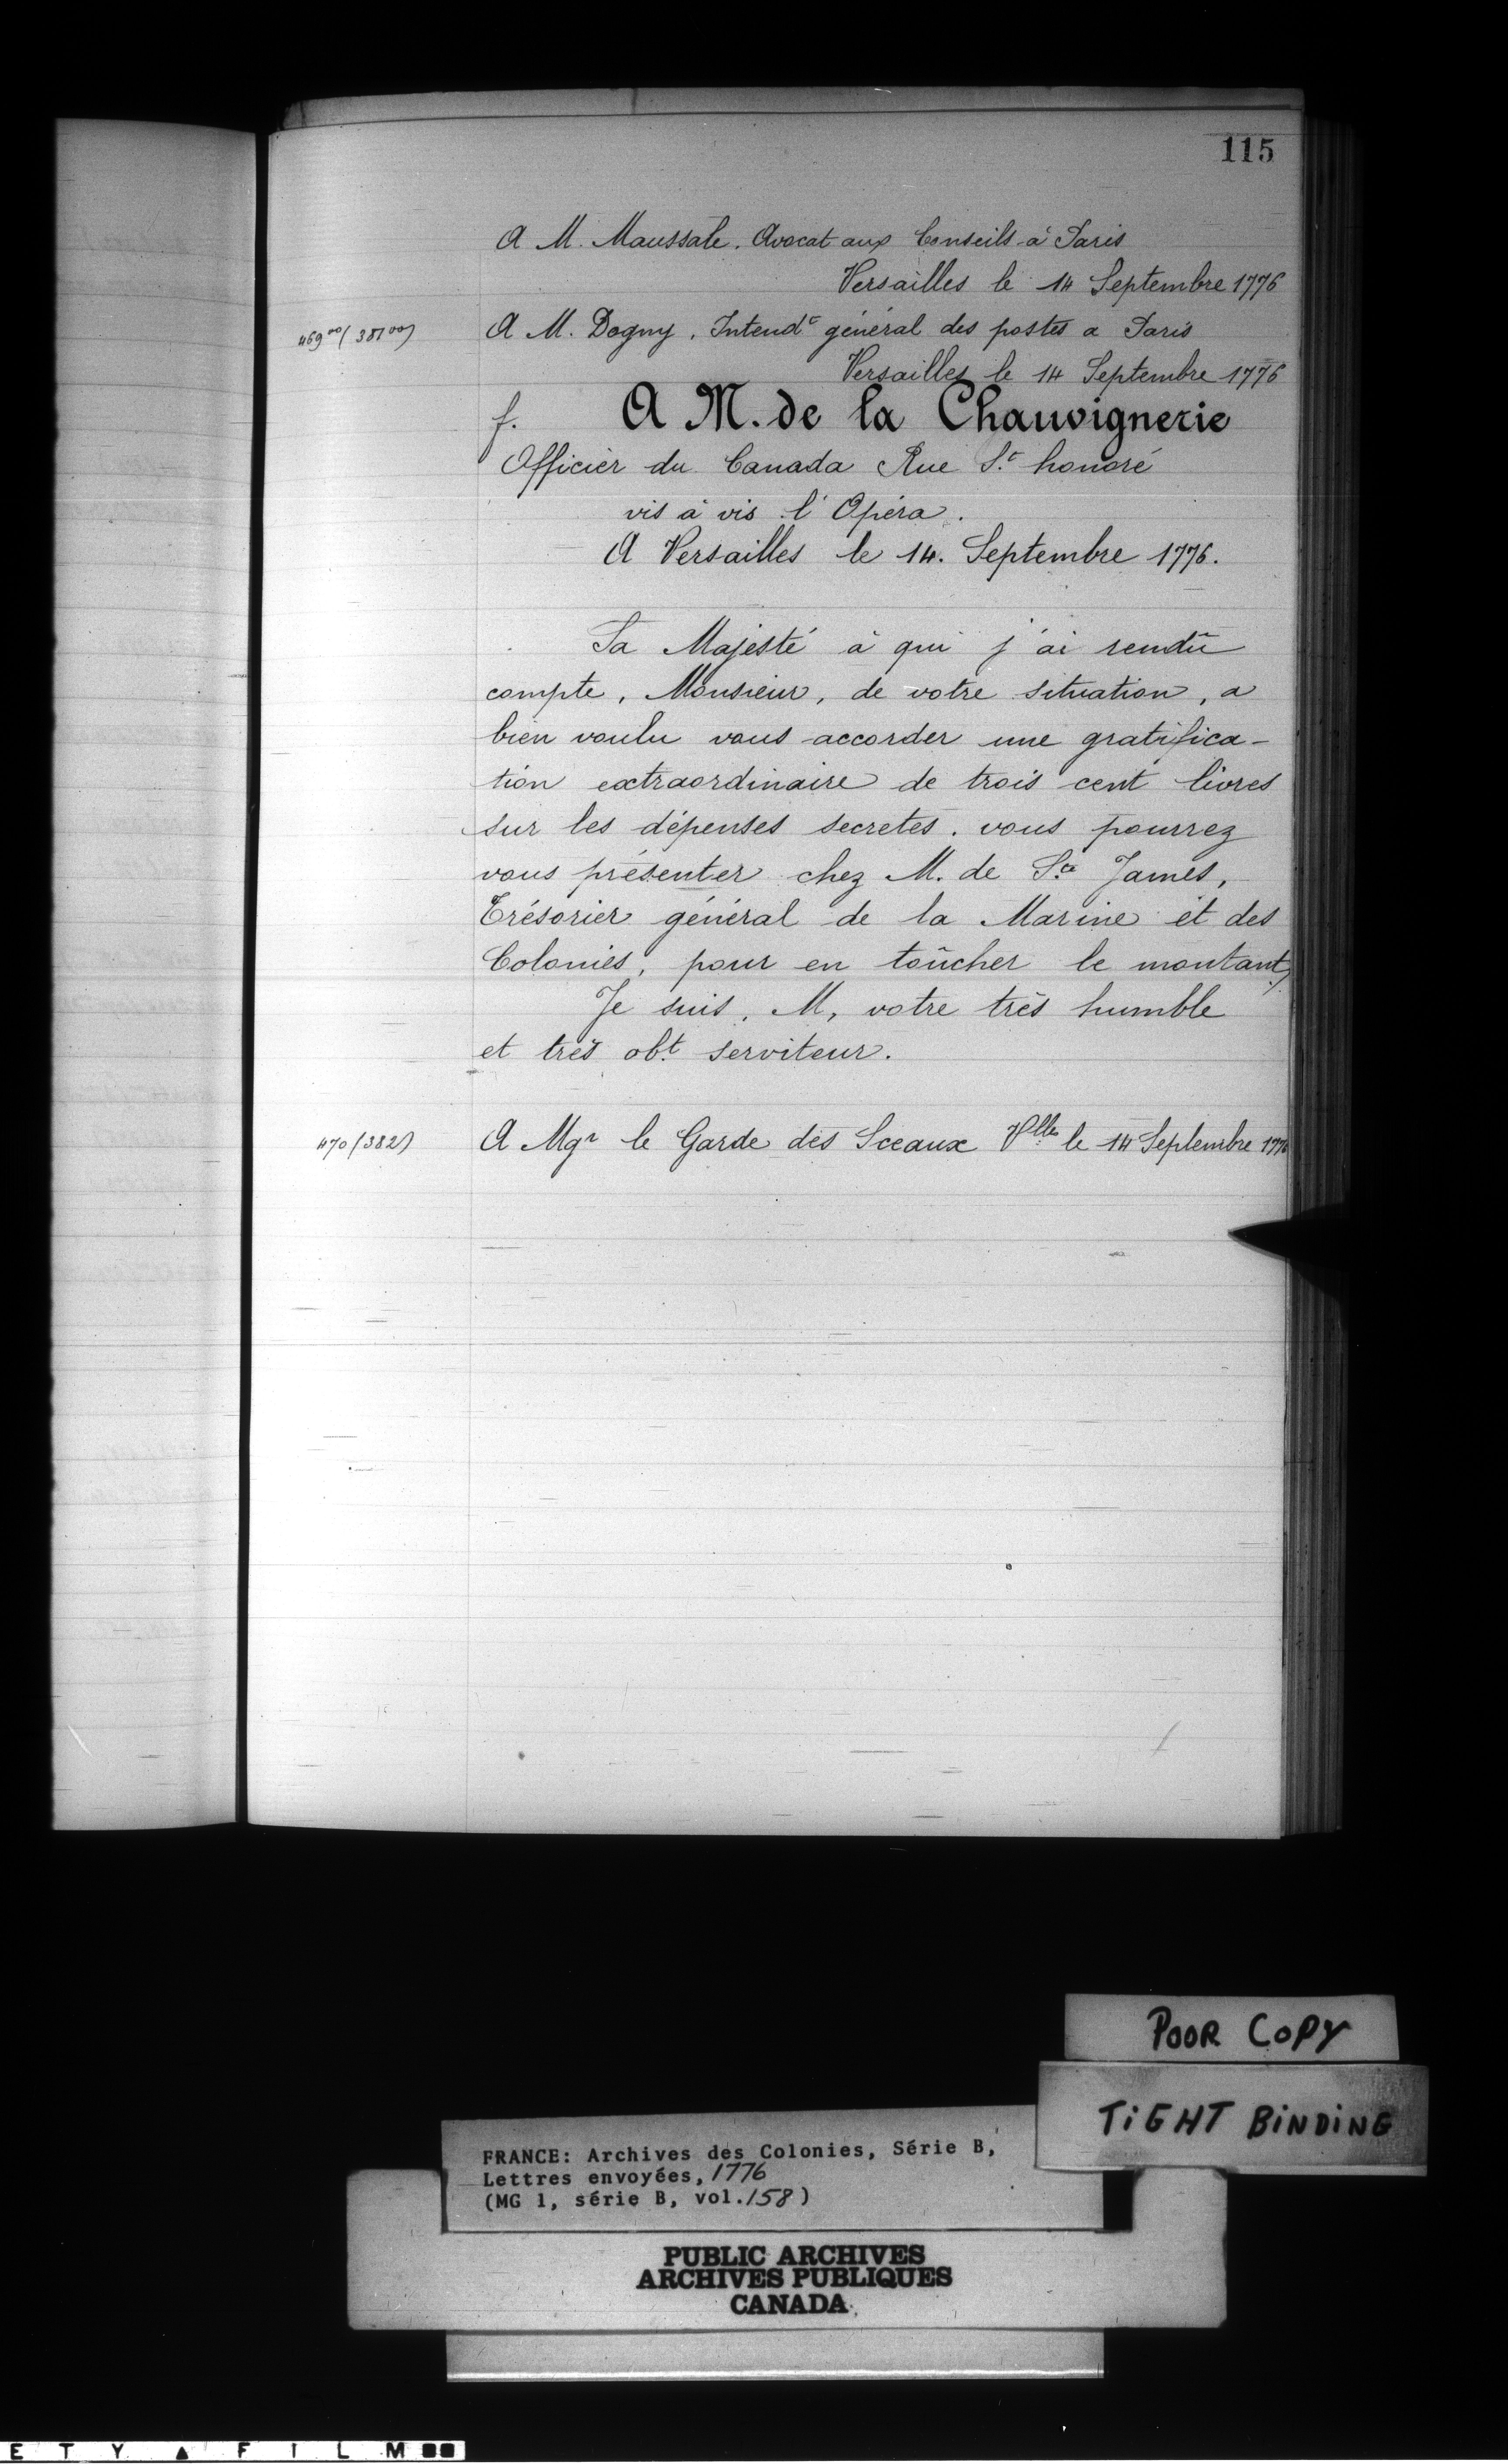 115
A M. Maussale. Avocat aux Conseils à Paris
Versailles le 14 Septembre 1776
469 vo (381 vo)
A M. Dogny. Intendt général des postes a Paris
Versailles le 14 Septembre 1776
f. A M. de la Chauvignerie
Officier du Canada Rue St honoré
vis à vis l'Opéra.
A Versailles le 14. Septembre 1776.
Sa Majesté à qui j'ai rendû
compte, Monsieur, de votre situation, a
bien voulu vous accorder une gratifica-
tion extraordinaire de trois cent livres
sur les dépenses secretes. vous pourrez
vous présenter chez M. de Ste James,
Trésorier général de la Marine et des
Colonies, pour en toûcher le montant.
Je suis, M, votre très humble
et très obt serviteur.
470 (382)
A Mgr le Garde des Sceaux Vlles le 14 Septembre 1776
POOR COPY
TiGHT BiNDiNG
FRANCE: Archives des Colonies, Série B,
Lettres envoyées, 1776
(MG 1, série B, vol. 158)
PUBLIC ARCHIVES
ARCHIVES PUBLIQUES
CANADA
E T Y ▲ F I L M